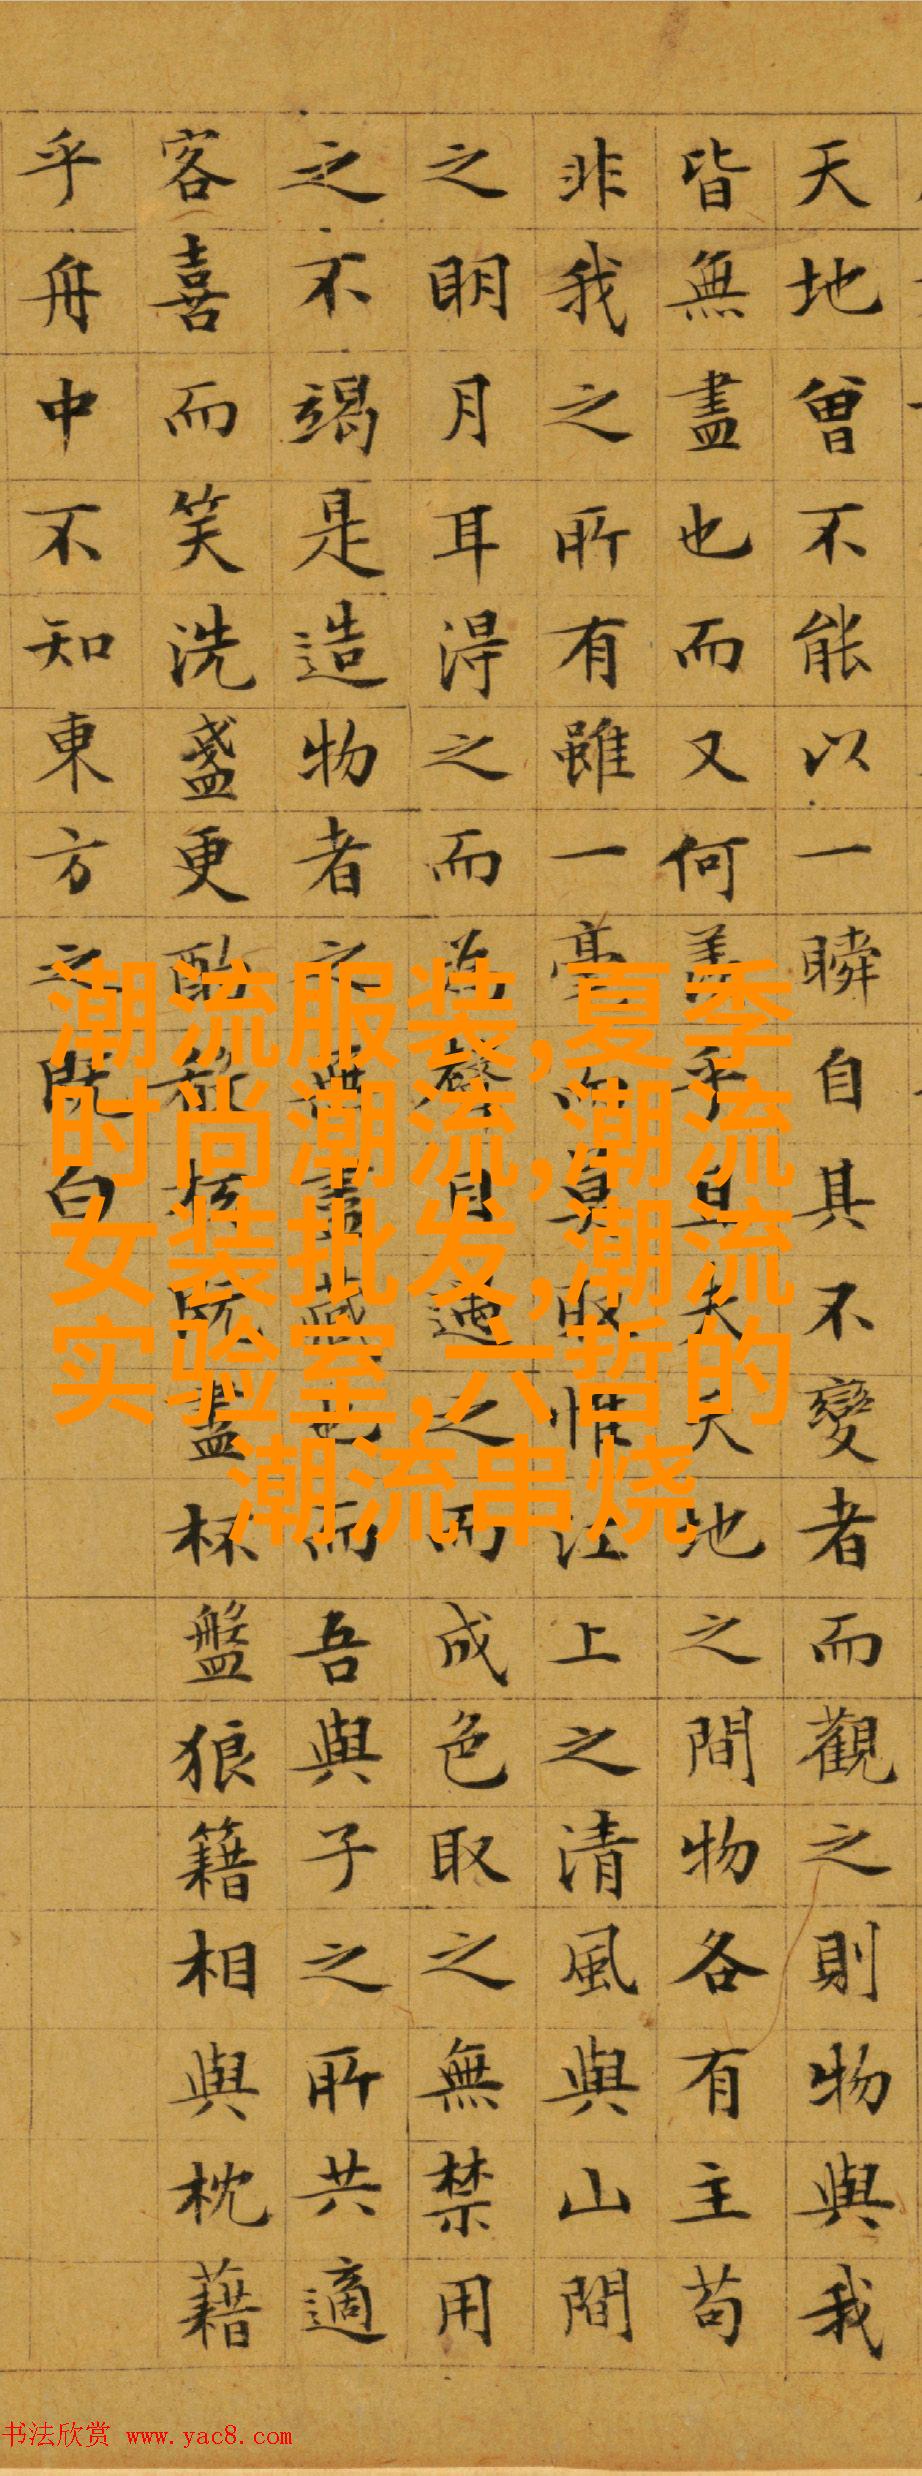 天地曾不能以一瞬自其不變者而觀之則物與我
皆無盡也而又何羨乎且夫天地之間物各有主苟
非我之所有雖一毫而莫取惟江上之清風與山間
之明月耳得之而為聲目遇之而成色取之無禁用
之不竭是造物者之無盡藏也而吾與子之所共適
客喜而笑洗盞更酌核既盡杯盤狼籍相與枕藉
乎舟中不知東方之既白
潮流服装,夏季
时尚潮流,潮流
女装批发,潮流
实验室,六哲的
潮流串烧
书法欣赏 www.yac8.com